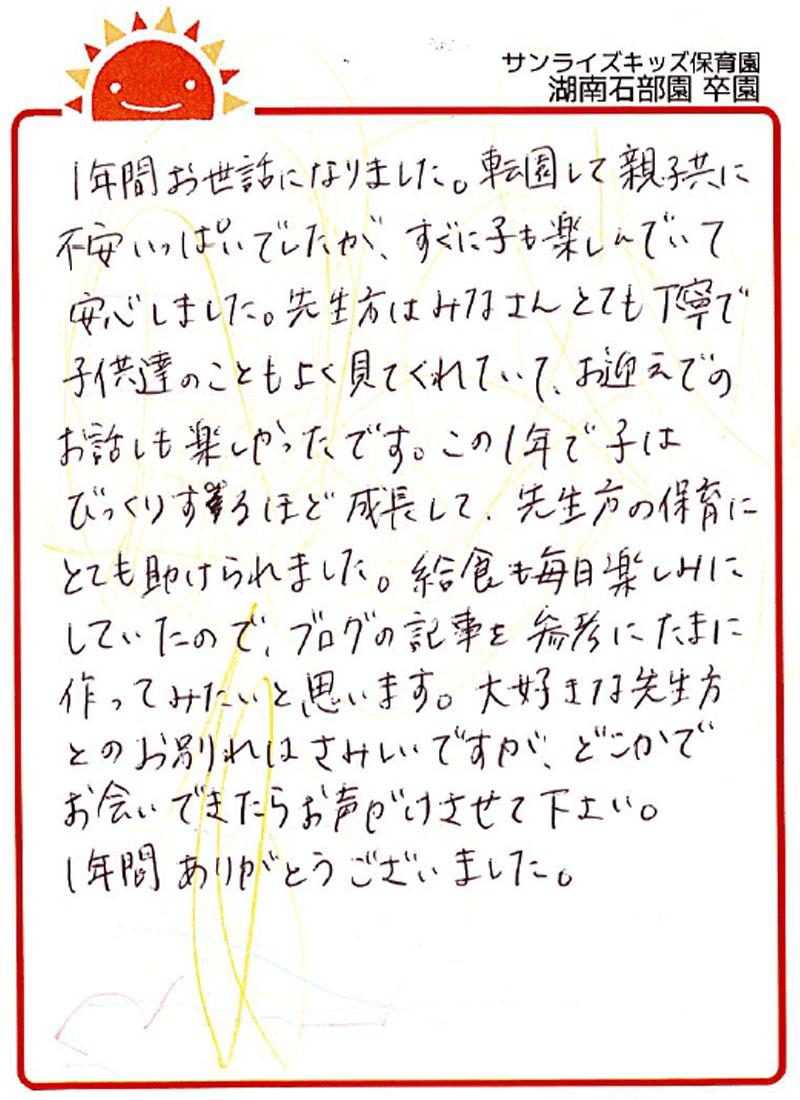 サンライズキッズ保育園
湖南石部園 卒園
1年間お世話になりました。転園して親子共に
不安いっぱいでしたが、すぐに子も楽しんでいて
安心しました。先生方はみなさんとても丁寧で
子供達のこともよく見てくれていて、お迎えでの
お話しも楽しかったです。この1年で子は
びっくりするほど成長して、先生方の保育に
とても助けられました。給食も毎日楽しみに
していたので、ブログの記事を参考にたまに
作ってみたいと思います。大好きな先生方
とのお別れはさみしいですが、どこかで
お会いできたらお声がけさせて下さい。
1年間ありがとうございました。